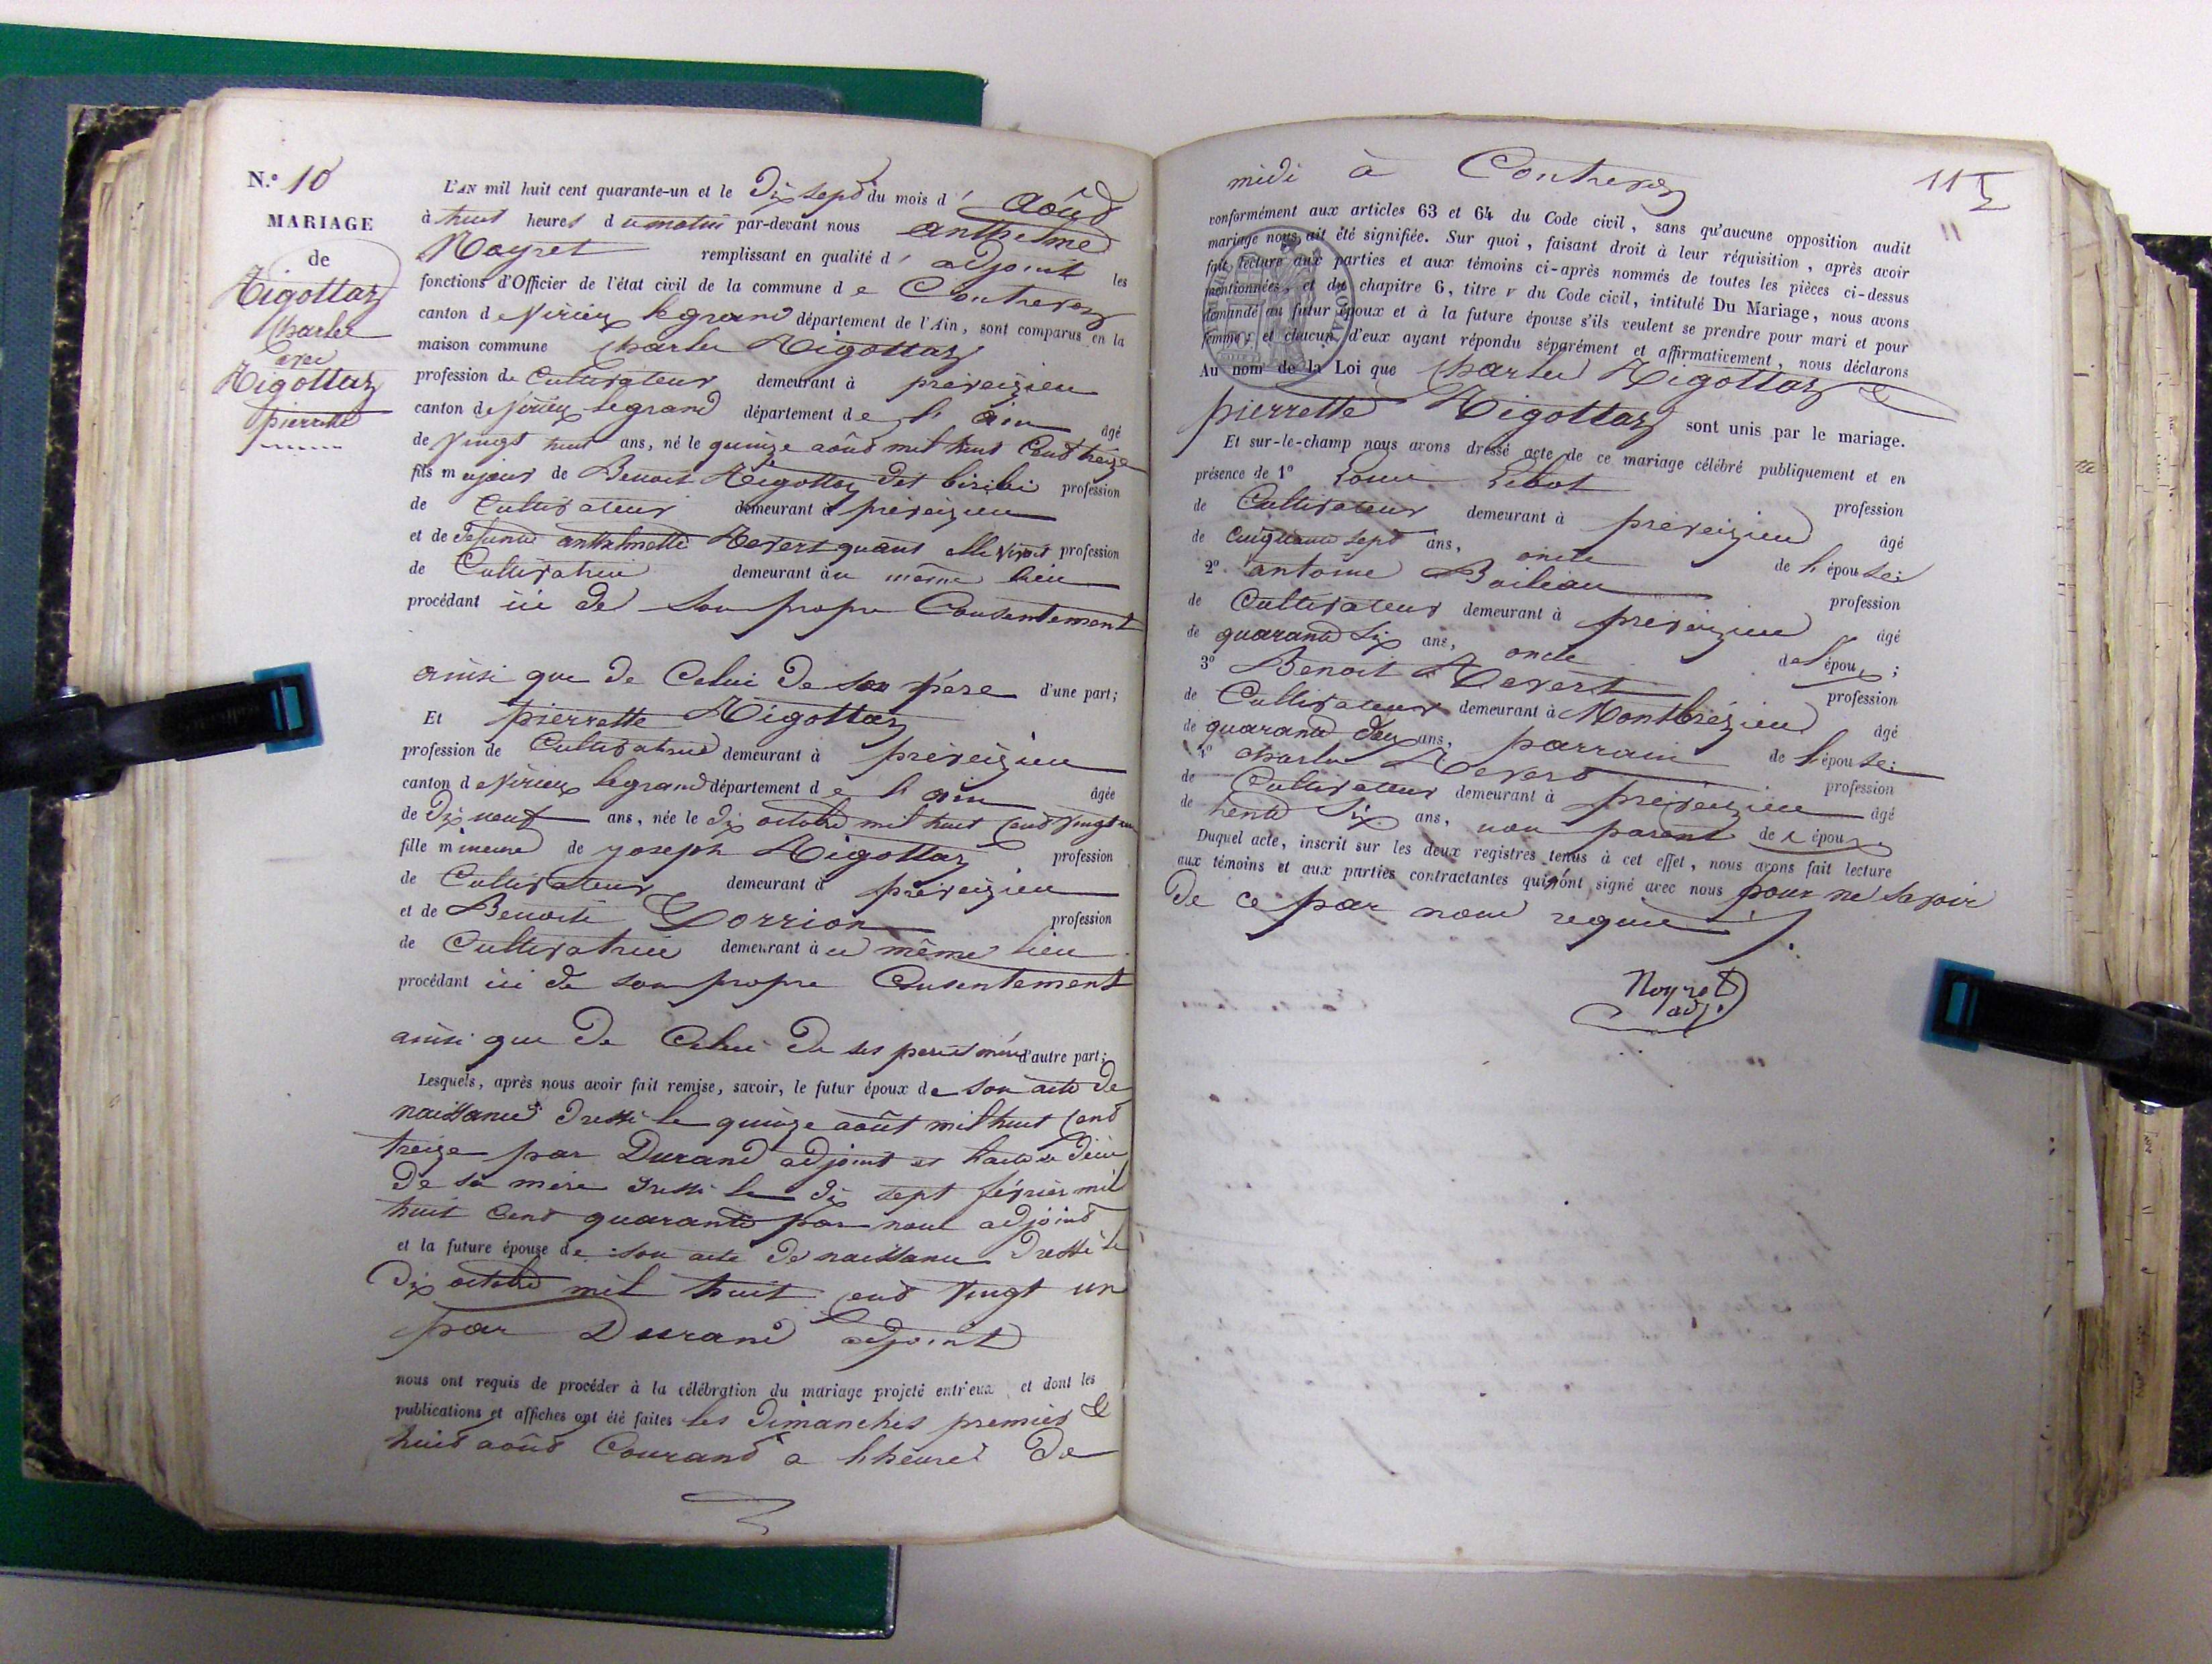 N.º 10
MARIAGE
de
Rigottaz
Charles
avec
Rigottaz
pierrette
L'AN mil huit cent quarante-un et le Dix sept du mois d' Août
à huit heures du matin par-devant nous anthelme
Noyret remplissant en qualité d' adjoint les
fonctions d'Officier de l'état civil de la commune de Contrevoz
canton de Virieu legrand département de l'Ain, sont comparus en la
maison commune Charles Rigottaz
profession de Cultivateur demeurant à preveizieu
canton de Virieu legrand département de l' ain âgé
de Vingt huit ans, né le quinze août mil huit Cent treize
fils majeur de Benoit Rigottaz dit biribi profession
de Cultivateur demeurant à preveizieu
et de defunte anthelmette Revert quant elle vivait profession
de Cultivatrice demeurant au même lieu
procédant ici de son propre Consentement
ainsi que de Celui de son père d'une part;
Et pierrette Rigottaz
profession de Cultivatrice demeurant à preveizieu
canton de Virieu legrand département de l' ain âgée
de Dix neuf ans, née le dix octobre mil huit Cent vingt un
fille mineure de joseph Rigottaz profession
de Cultivateur demeurant à preveizieu
et de Benoite Dorrion profession
de Cultivatrice demeurant au même lieu
procédant ici de son propre Consentement
ainsi que de Celui de ses père et mère d'autre part;
Lesquels, après nous avoir fait remise, savoir, le futur époux de son acte de
naissance dressé le quinze août mil huit Cent
treize par Durand adjoint et l'acte de décès
de sa mère dressé le dix sept février mil
huit Cent quarante par nous adjoint
et la future épouse de son acte de naissance dressé le
dix octobre mil huit cent Vingt un
par Durand adjoint
nous ont requis de procéder à la célébration du mariage projeté entr'eux, et dont les
publications et affiches ont été faites les dimanches premier &
huit août Courant a lheure de
midi à Contrevoz
115
11
conformément aux articles 63 et 64 du Code civil, sans qu'aucune opposition audit
mariage nous ait été signifiée. Sur quoi, faisant droit à leur réquisition, après avoir
fait lecture aux parties et aux témoins ci-après nommés de toutes les pièces ci-dessus
mentionnées, et du chapitre 6, titre v du Code civil, intitulé Du Mariage, nous avons
demandé au futur époux et à la future épouse s'ils veulent se prendre pour mari et pour
femme; et chacun d'eux ayant répondu séparément et affirmativement, nous déclarons
Au nom de la Loi que Charles Rigottaz &
pierrette Rigottaz sont unis par le mariage.
Et sur-le-champ nous avons dressé acte de ce mariage célébré publiquement et en
présence de 1º Louis Libot profession
de Cultivateur demeurant à preveizieu âgé
de Cinquante sept ans, oncle de l'épouse;
2º antoine Boileau profession
de Cultivateur demeurant à preveizieu âgé
de quarante six ans, oncle de l'époux;
3º Benoit Revert profession
de Cultivateur demeurant à Montbrézieu âgé
de quarante deux ans, parrain de l'épouse;
4º Charles Revert profession
de Cultivateur demeurant à preveizieu âgé
de trente six ans, non parent de l'époux.
Duquel acte, inscrit sur les deux registres tenus à cet effet, nous avons fait lecture
aux témoins et aux parties contractantes qui n'ont signé avec nous pour ne savoir
de ce par nous requis
Noyret
adj.